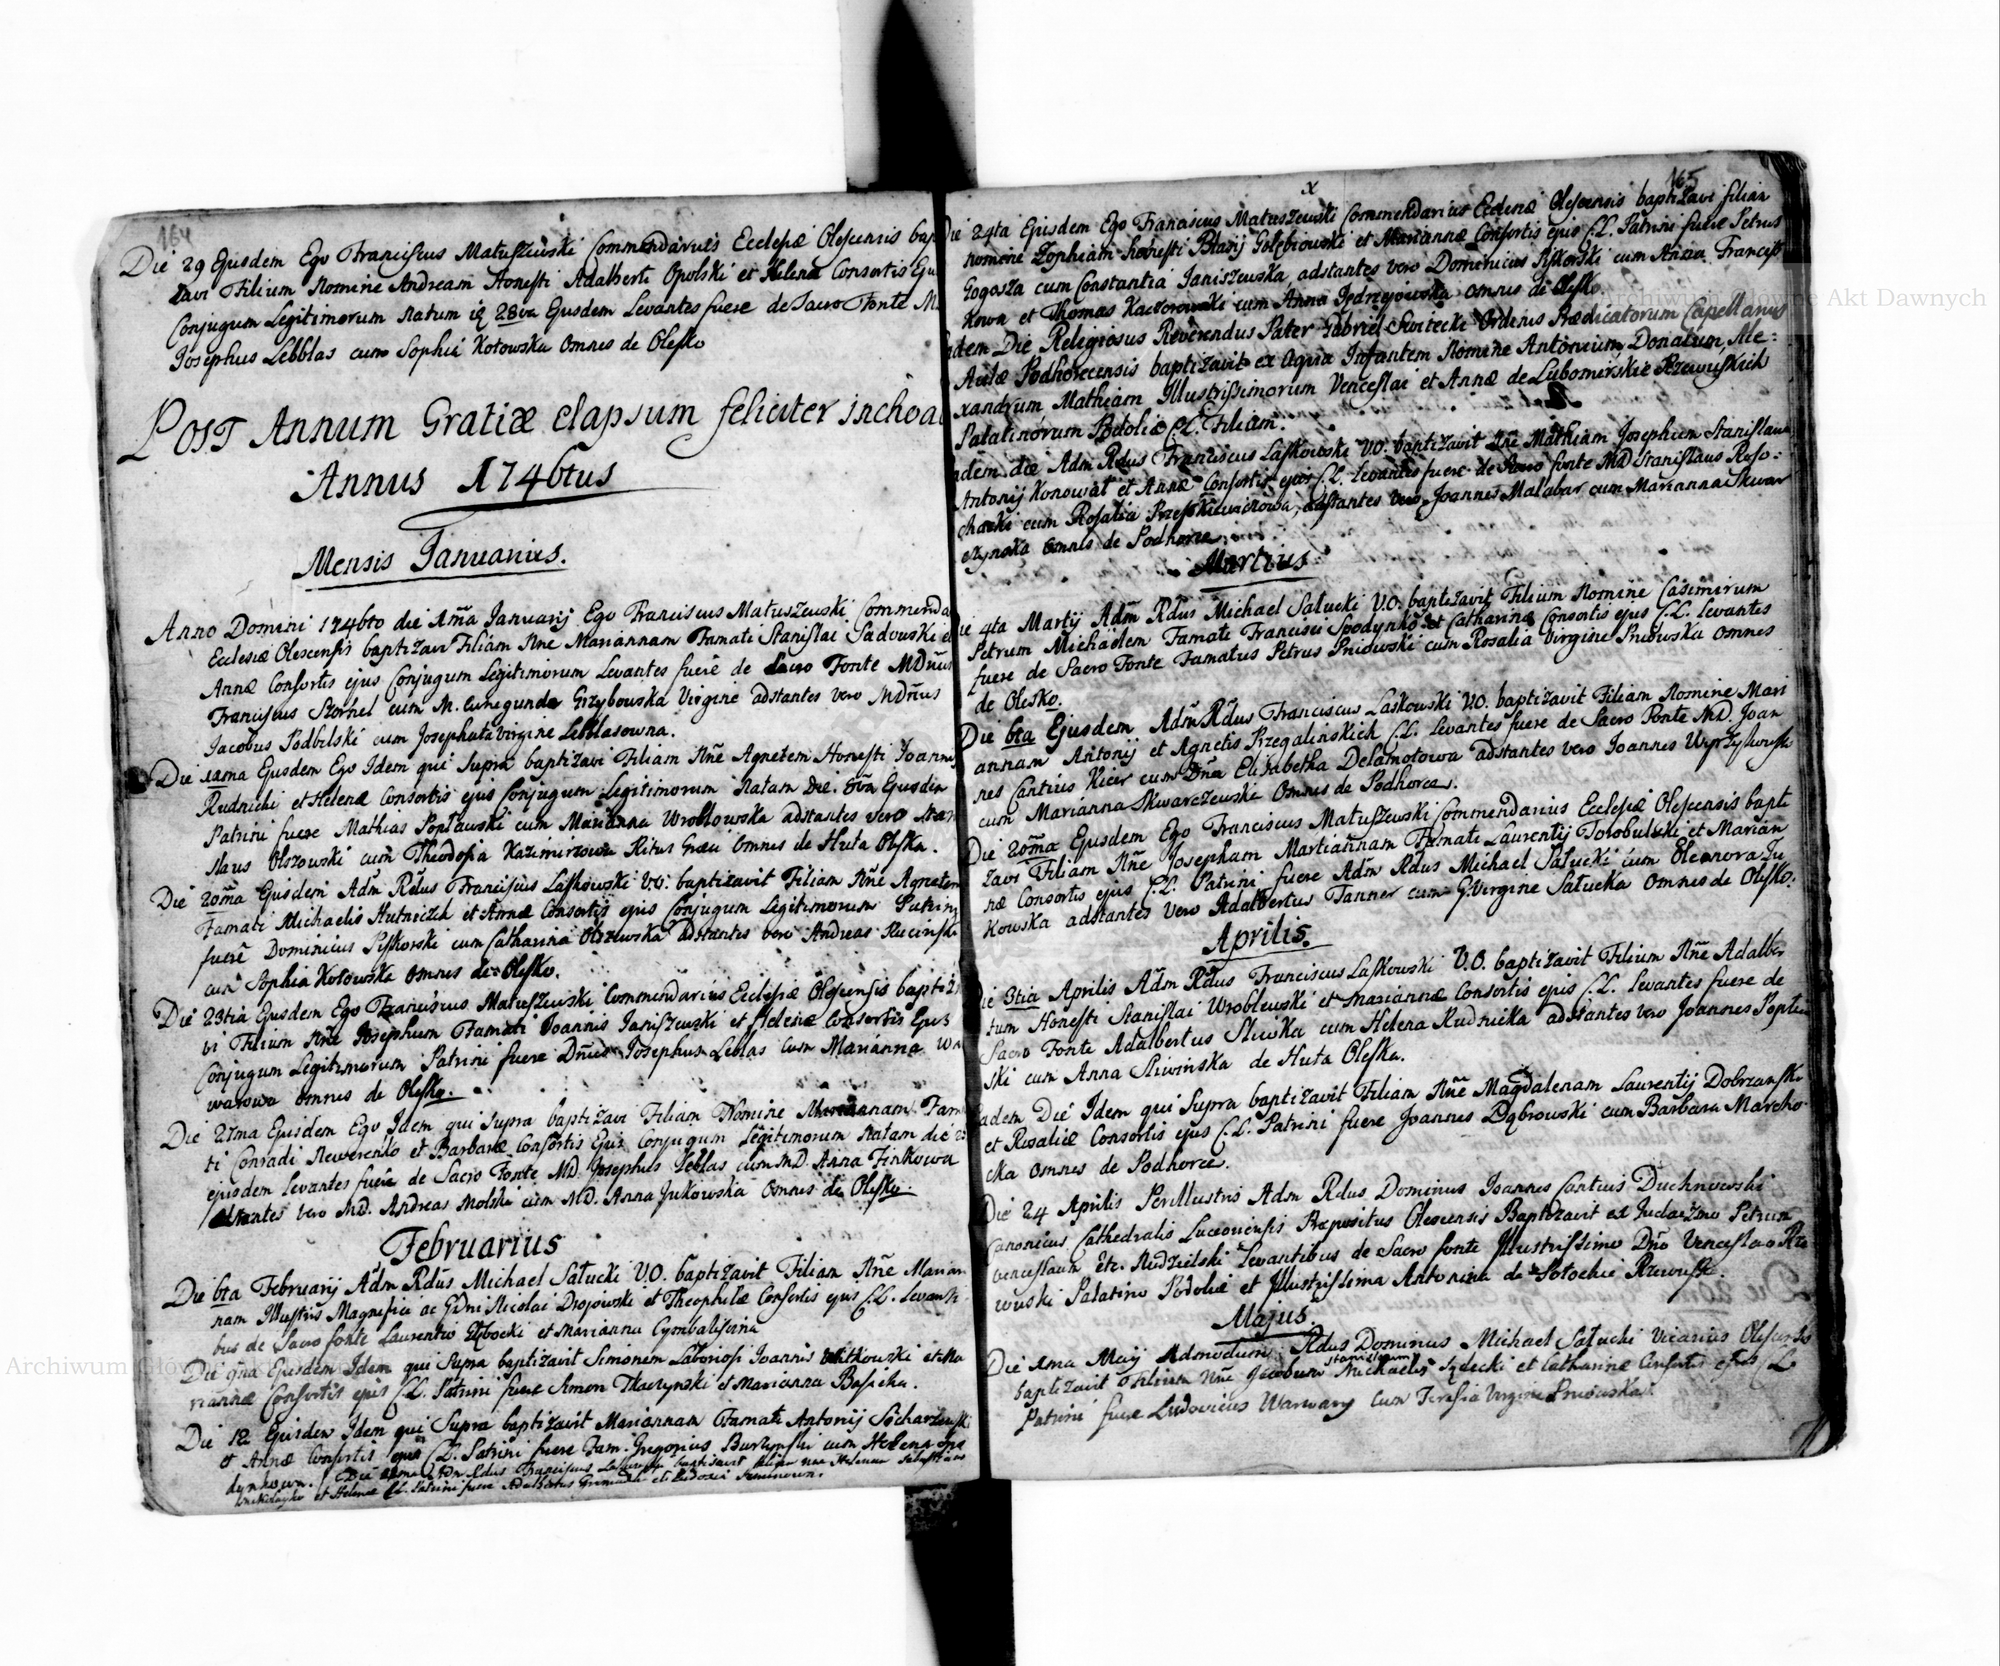 164
Die 29 Ejusdem Ego Franciscus Matuszewski Commendarius Ecclesiæ Olescensis bap
tizavi Filium Nomine Andream Honesti Adalberti Opolski et Helenæ Consortis Eju
Conjugum Legitimorum Natum 28va Ejusdem Levantes fuere de Sacro Fonte M
Josephus Lebblas cum Sophiá Kotowska Omnes de Olesko
Post Annum Gratiæ elapsum feliciter inchoa
Annus 1746tus
Mensis Januarius.
Anno Domini 1746to die 1ma Januarij Ego Franciscus Matuszewski Commenda
Ecclesiæ Olescensis baptizavi Filiam Nne Mariannam Famati Stanislai Sadowski et
Annæ Consortis ejus Conjugum Legitimorum Levantes fuere de Sacro Fonte MDnus
Franciscus Storhel cum M. Cunegunda Grzybowska Virgine adstantes vero MDnus
Jacobus Podbilski cum Josephata virgine Lebblasowna.
Die 1ama Ejusdem Ego Idem qui Supra baptizavi Filiam Nne Agnetem Honesti Joannis
Rudnicki et Helenæ Consortis ejus Conjugum Legitimorum Natam Die Ejusdem
Patrini fuere Mathias Popławski cum Marianna Wroblowska adstantes vero Stani
slaus Olszowski cum Theodosia Kazimirzowa Ritus Græci Omnes de Huta Oleska.
Die 20ma Ejusdem Adm Rdus Franciscus Laskowski V.O. baptizavit Filiam Nne Agnetem
Famati Michaelis Hutniczek et Annæ Consortis ejus Conjugum Legitimorum Patrini
fuere Dominicus Piskorski cum Catharina Olszewska adstantes vero Andreas Rucinski
cum Sophia Kotowska Omnes de Olesko.
Die 23tia Ejusdem Ego Franciscus Matuszewski Commendarius Ecclesiæ Olescensis baptiza
vi Filium Nne Josephum Famati Joannis Janiszewski et Helenæ Consortis Ejus
Conjugum Legitimorum Patrini fuere Dnus Josephus Leblas cum Marianna Wa
warowa Omnes de Olesko.
Die 27ma Ejusdem Ego Idem qui Supra baptizavi Filiam Nomine Mariannam Fama
ti Conradi Newerenko et Barbaræ Consortis Ejus Conjugum Legitimorum Natam die 25
ejusdem Levantes fuere de Sacro Fonte MD. Josephus Leblas cum MD. Anna Finkowa
adstantes vero MD. Andreas Molski cum MD. Anna Jukowska Omnes de Olesko.
Februarius
Die 6ta Februarij Adm Rdus Michael Sałucki V.O. baptizavit Filiam Nne Marian
nam Illustris Magnifici ac Gdni Nicolai Drojowski et Theophilæ Consortis ejus C.L. Levanti
bus de Sacro fonte Laurentio Zębocki et Marianna Cymbalistina
Die 9na Ejusdem Idem qui Supra baptizavit Simonem Laboriosi Joannis Witkowski et Ma
riannæ Consortis ejus C.L. Patrini fuere Simon Tkaczynski et Marianna Basicha.
Die 12 Ejusdem Idem qui Supra baptizavit Mariannam Famati Antonij Socharzewski
et Annæ Consortis ejus C.L. Patrini fuere Fam. Gregorius Burzynski cum Helena Spe
dynkowa. Die Adm Rdus Franciscus Laskowski baptizavit filiam Nne Helenam Sebastiani
et Helenæ C.L. Patrini fuere Adalbertus et
165
x
Die 24ta Ejusdem Ego Franciscus Matuszewski Commendarius Ecclesiæ Olescensis baptizavi filiam
nomine Zophiam Honesti Blasij Gołębiowski et Mariannæ Consortis ejus C.L. Patrini fuere Petrus
Gogosza cum Constantia Janiszewska adstantes vero Dominicus Piskorski cum Anna Francisz
kowa et Thomas Kaczorowski cum Anna Jędrzejowska omnes de Olesko.
adem Die Religiosus Reverendus Pater Gabriel Switecki Ordinis Prædicatorum Capellanus
Aulæ Podhorecensis baptizavit ex Aqua Infantem Nomine Antonium, Donatum, Ale:
xandrum, Mathiam Illustrissimorum Venceslai et Annæ de Lubomirskie Rzewuskich
Palatinorum Podoliæ C.L. Filium.
adem die Adm Rdus Franciscus Laskowski V.O. baptizavit Nne Mathiam Josephum Stanislaum
Antonij Konował et Annæ Consortis ejus C.L. Levantes fuere de Sacro fonte MD Stanislaus Roso:
chacki cum Rosalia Przeskiewiczowa, adstantes vero Joannes Malabar cum Marianna Skwar
czynska Omnes de Podhorce.
Martius
Die 4ta Martij Adm Rdus Michael Sałucki V.O. baptizavit Filium Nomine Casimirum
Petrum Michaëlem Famati Francisci Spodynko et Catharinæ Consortis ejus C.L. Levantes
fuere de Sacro Fonte Famatus Petrus Pniowski cum Rosalia Virgine Pniowska Omnes
de Olesko.
Die 6ta Ejusdem Adm Rdus Franciscus Laskowski V.O. baptizavit Filiam Nomine Mari
annam Antonij et Agnetis Przegalinskich C.L. Levantes fuere de Sacro Fonte MD. Joan
nes Cantius Kicer cum Dna Elisabetha Delamotowa adstantes vero Joannes Wyrzykowski
cum Marianna Skwarczewski Omnes de Podhorce.
Die 20ma Ejusdem Ego Franciscus Matuszewski Commendarius Ecclesiæ Olescensis bapti
zavi Filiam Nne Josepham Martiannam Famati Laurentij Porobulski et Marian
næ Consortis ejus C.L. Patrini fuere Adm Rdus Michael Sałucki cum Eleonora Zu
kowska adstantes vero Adalbertus Tanner cum G. Virgine Sałucka Omnes de Olesko.
Aprilis.
Die 3tia Aprilis Adm Rdus Franciscus Laskowski V.O. baptizavit Filium Nne Adalber
tum Honesti Stanislai Wroblewski et Mariannæ Consortis ejus C.L. Levantes fuere de
Sacro Fonte Adalbertus Sliwka cum Helena Rudnicka adstantes vero Joannes Popław
ski cum Anna Sliwinska de Huta Oleska.
Eadem Die Idem qui Supra baptizavit Filiam Nne Magdalenam Laurentij Dobrzanski
et Rosaliæ Consortis ejus C.L. Patrini fuere Joannes Dąbrowski cum Barbara Marcho
cka Omnes de Podhorce.
Die 24 Aprilis Perillustris Adm Rdus Dominus Joannes Cantius Duchnowski
Canonicus Cathedralis Luceoriensis Præpositus Olescensis Baptizavit ex Judaizmo Petrum
Venceslaum etc. Nudzielski Levantibus de Sacro fonte Illustrissimo Dno Venceslao Rze
wuski Palatino Podoliæ et Illustrissima Antonina de Potockie Rzewuska.
Majus.
Die 1ma Maij Admodum Rdus Dominus Michael Sałucki Vicarius Olescensis
baptizavit Filium Nne Jacobum Stanislaum Michaelis Sędecki et Catharinæ Consortis ejus C.L.
Patrini fuere Ludovicus Warwary cum Teresia Virgine Pniowska.
Archiwum Główne Akt Dawnych
Archiwum Główne